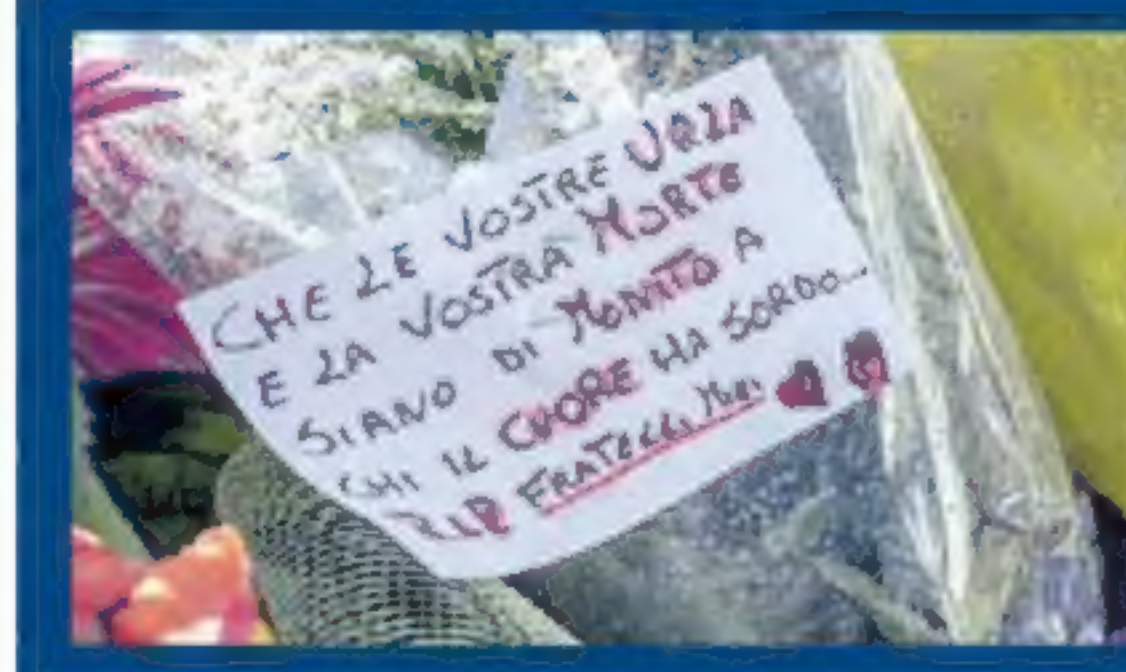 CHE LE VOSTRE URLA
E LA VOSTRA MORTE
SIANO DI MONITO A
CHI IL CUORE HA SORDO...
RIP FRATELLI MIEI